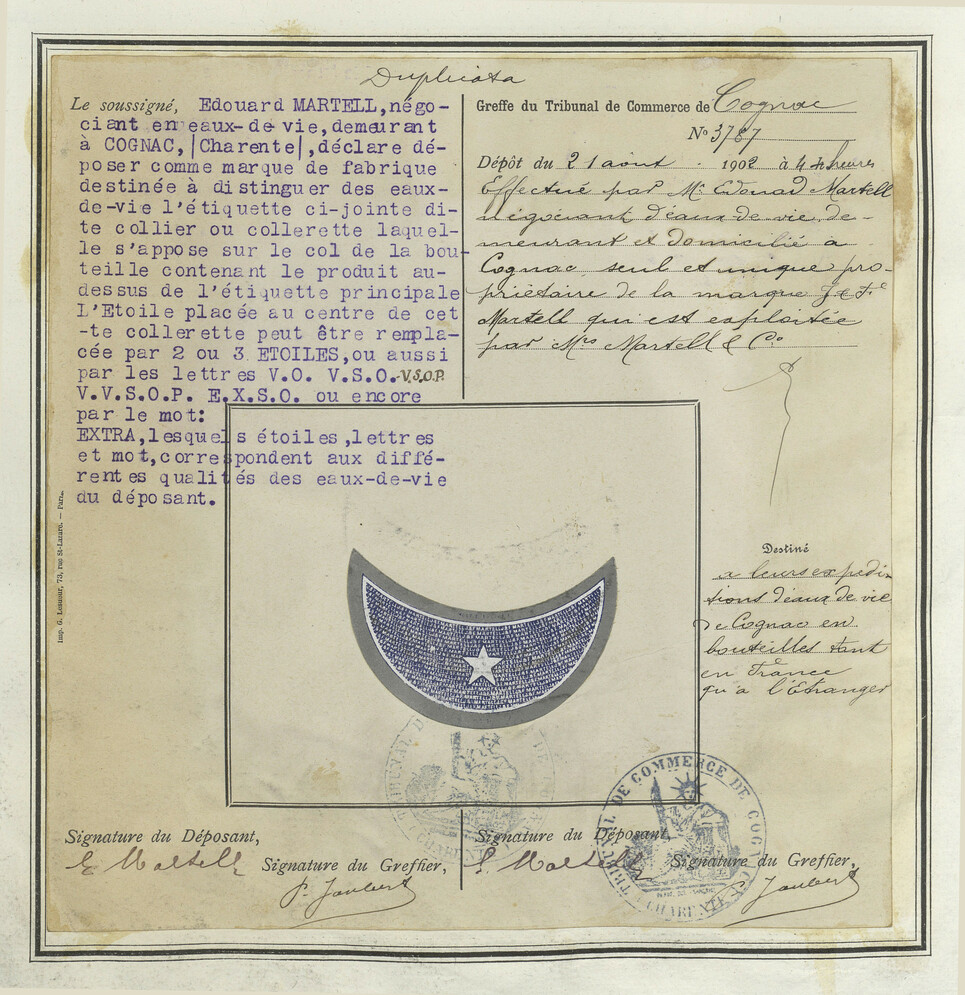 Duplicata
Le soussigné, Edouard MARTELL,négo-
ciant en eaux-de-vie,demeurant
à COGNAC,|Charente|,déclare dé-
poser comme marque de fabrique
destinée à distinguer des eaux-
de-vie l'étiquette ci-jointe di-
te collier ou collerette laquel-
le s'appose sur le col de la bou-
teille contenant le produit au-
dessus de l'étiquette principale
L'Etoile placée au centre de cet
-te collerette peut être rempla-
cée par 2 ou 3 ETOILES,ou aussi
par les lettres V.O. V.S.O.-V.S.O.P.
V.V.S.O.P. E.X.S.O. ou encore
par le mot:
EXTRA,lesquels étoiles,lettres
et mot,correspondent aux diffé-
rentes qualités des eaux-de-vie
du déposant.
Greffe du Tribunal de Commerce de Cognac
N° 3787
Dépôt du 21 août 1902 à 4 heures
Effectué par Mr Edouard Martell
négociant d'eaux-de-vie, de-
meurant et domicilié à
Cognac seul et unique pro-
priétaire de la marque J & Fc
Martell qui est exploitée
par Mrs Martell & Co
Destiné
a leurs expédi-
tions d'eaux de vie
de Cognac en
bouteilles tant
en France
qu'a l'Etranger
Imp. G. Lesueur, 73, rue St-Lazare. — Paris.
TRIBUNAL DE COMMERCE DE COGNAC
CHARENTE
Signature du Déposant,
E Martell
Signature du Greffier,
P. Joubert
Signature du Déposant,
E. Martell
Signature du Greffier,
P. Joubert